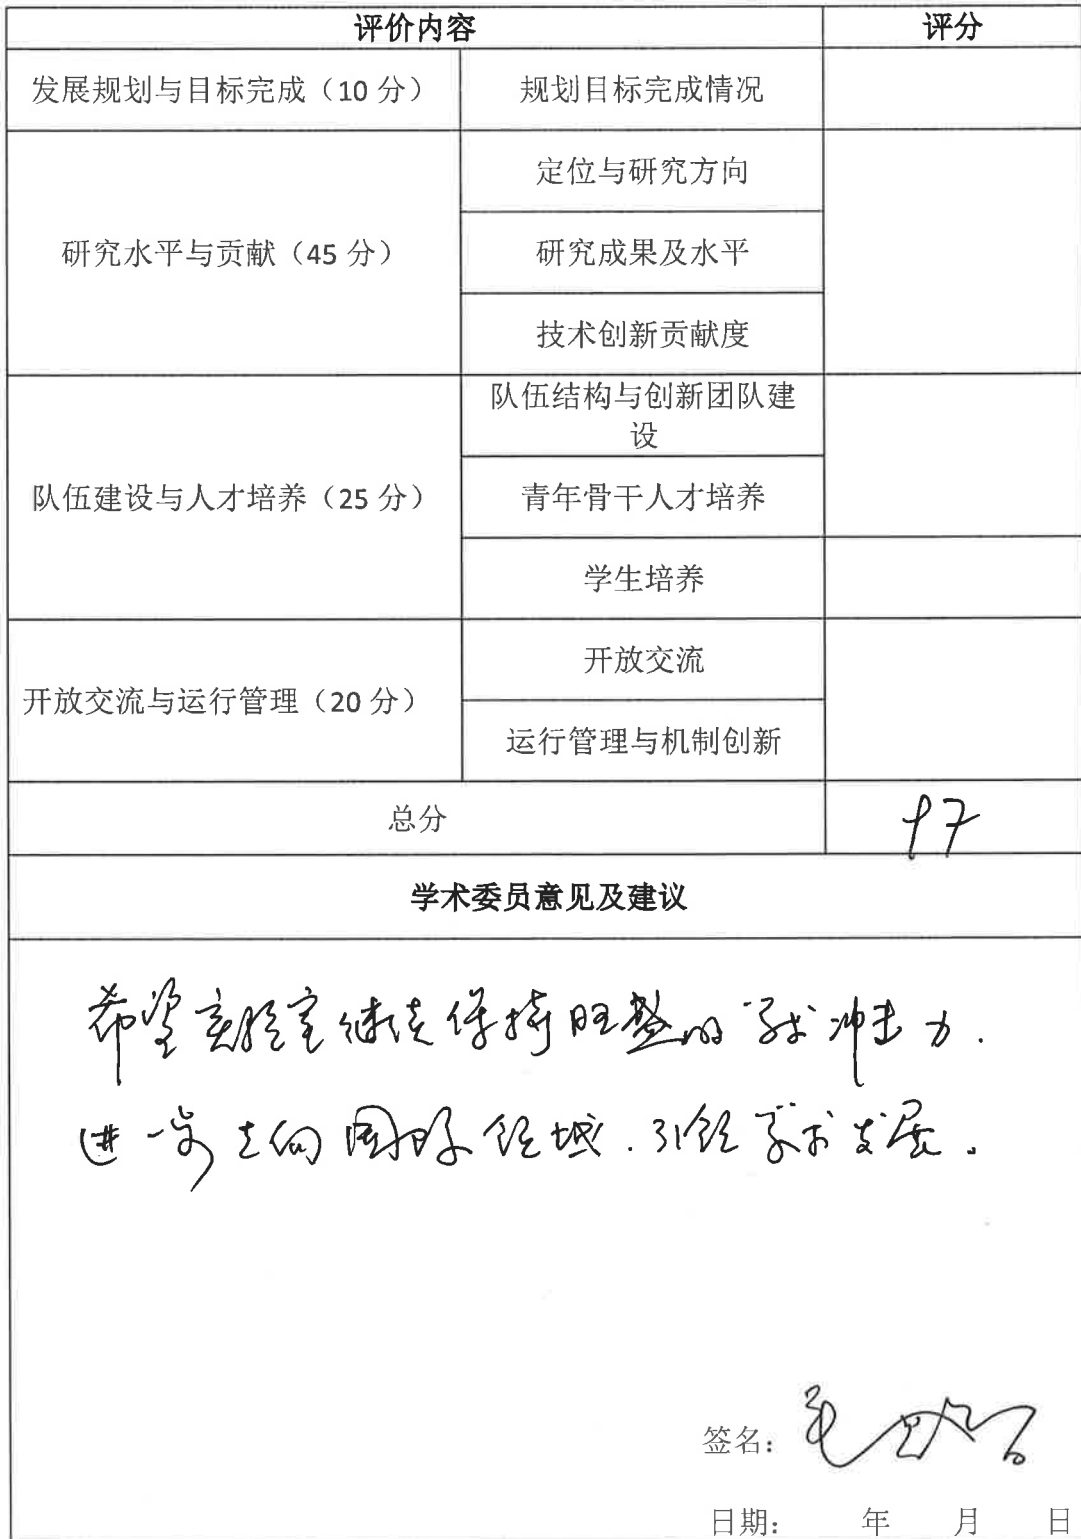 评价内容 评分
发展规划与目标完成（10 分） 规划目标完成情况
研究水平与贡献（45 分） 定位与研究方向
研究成果及水平
技术创新贡献度
队伍建设与人才培养（25 分） 队伍结构与创新团队建
设
青年骨干人才培养
学生培养
开放交流与运行管理（20 分） 开放交流
运行管理与机制创新
总分 97
学术委员意见及建议
希望实验室继续保持旺盛的学术冲击力.
进一步走向国际领域.引领学术发展。
签名：
日期： 年 月 日